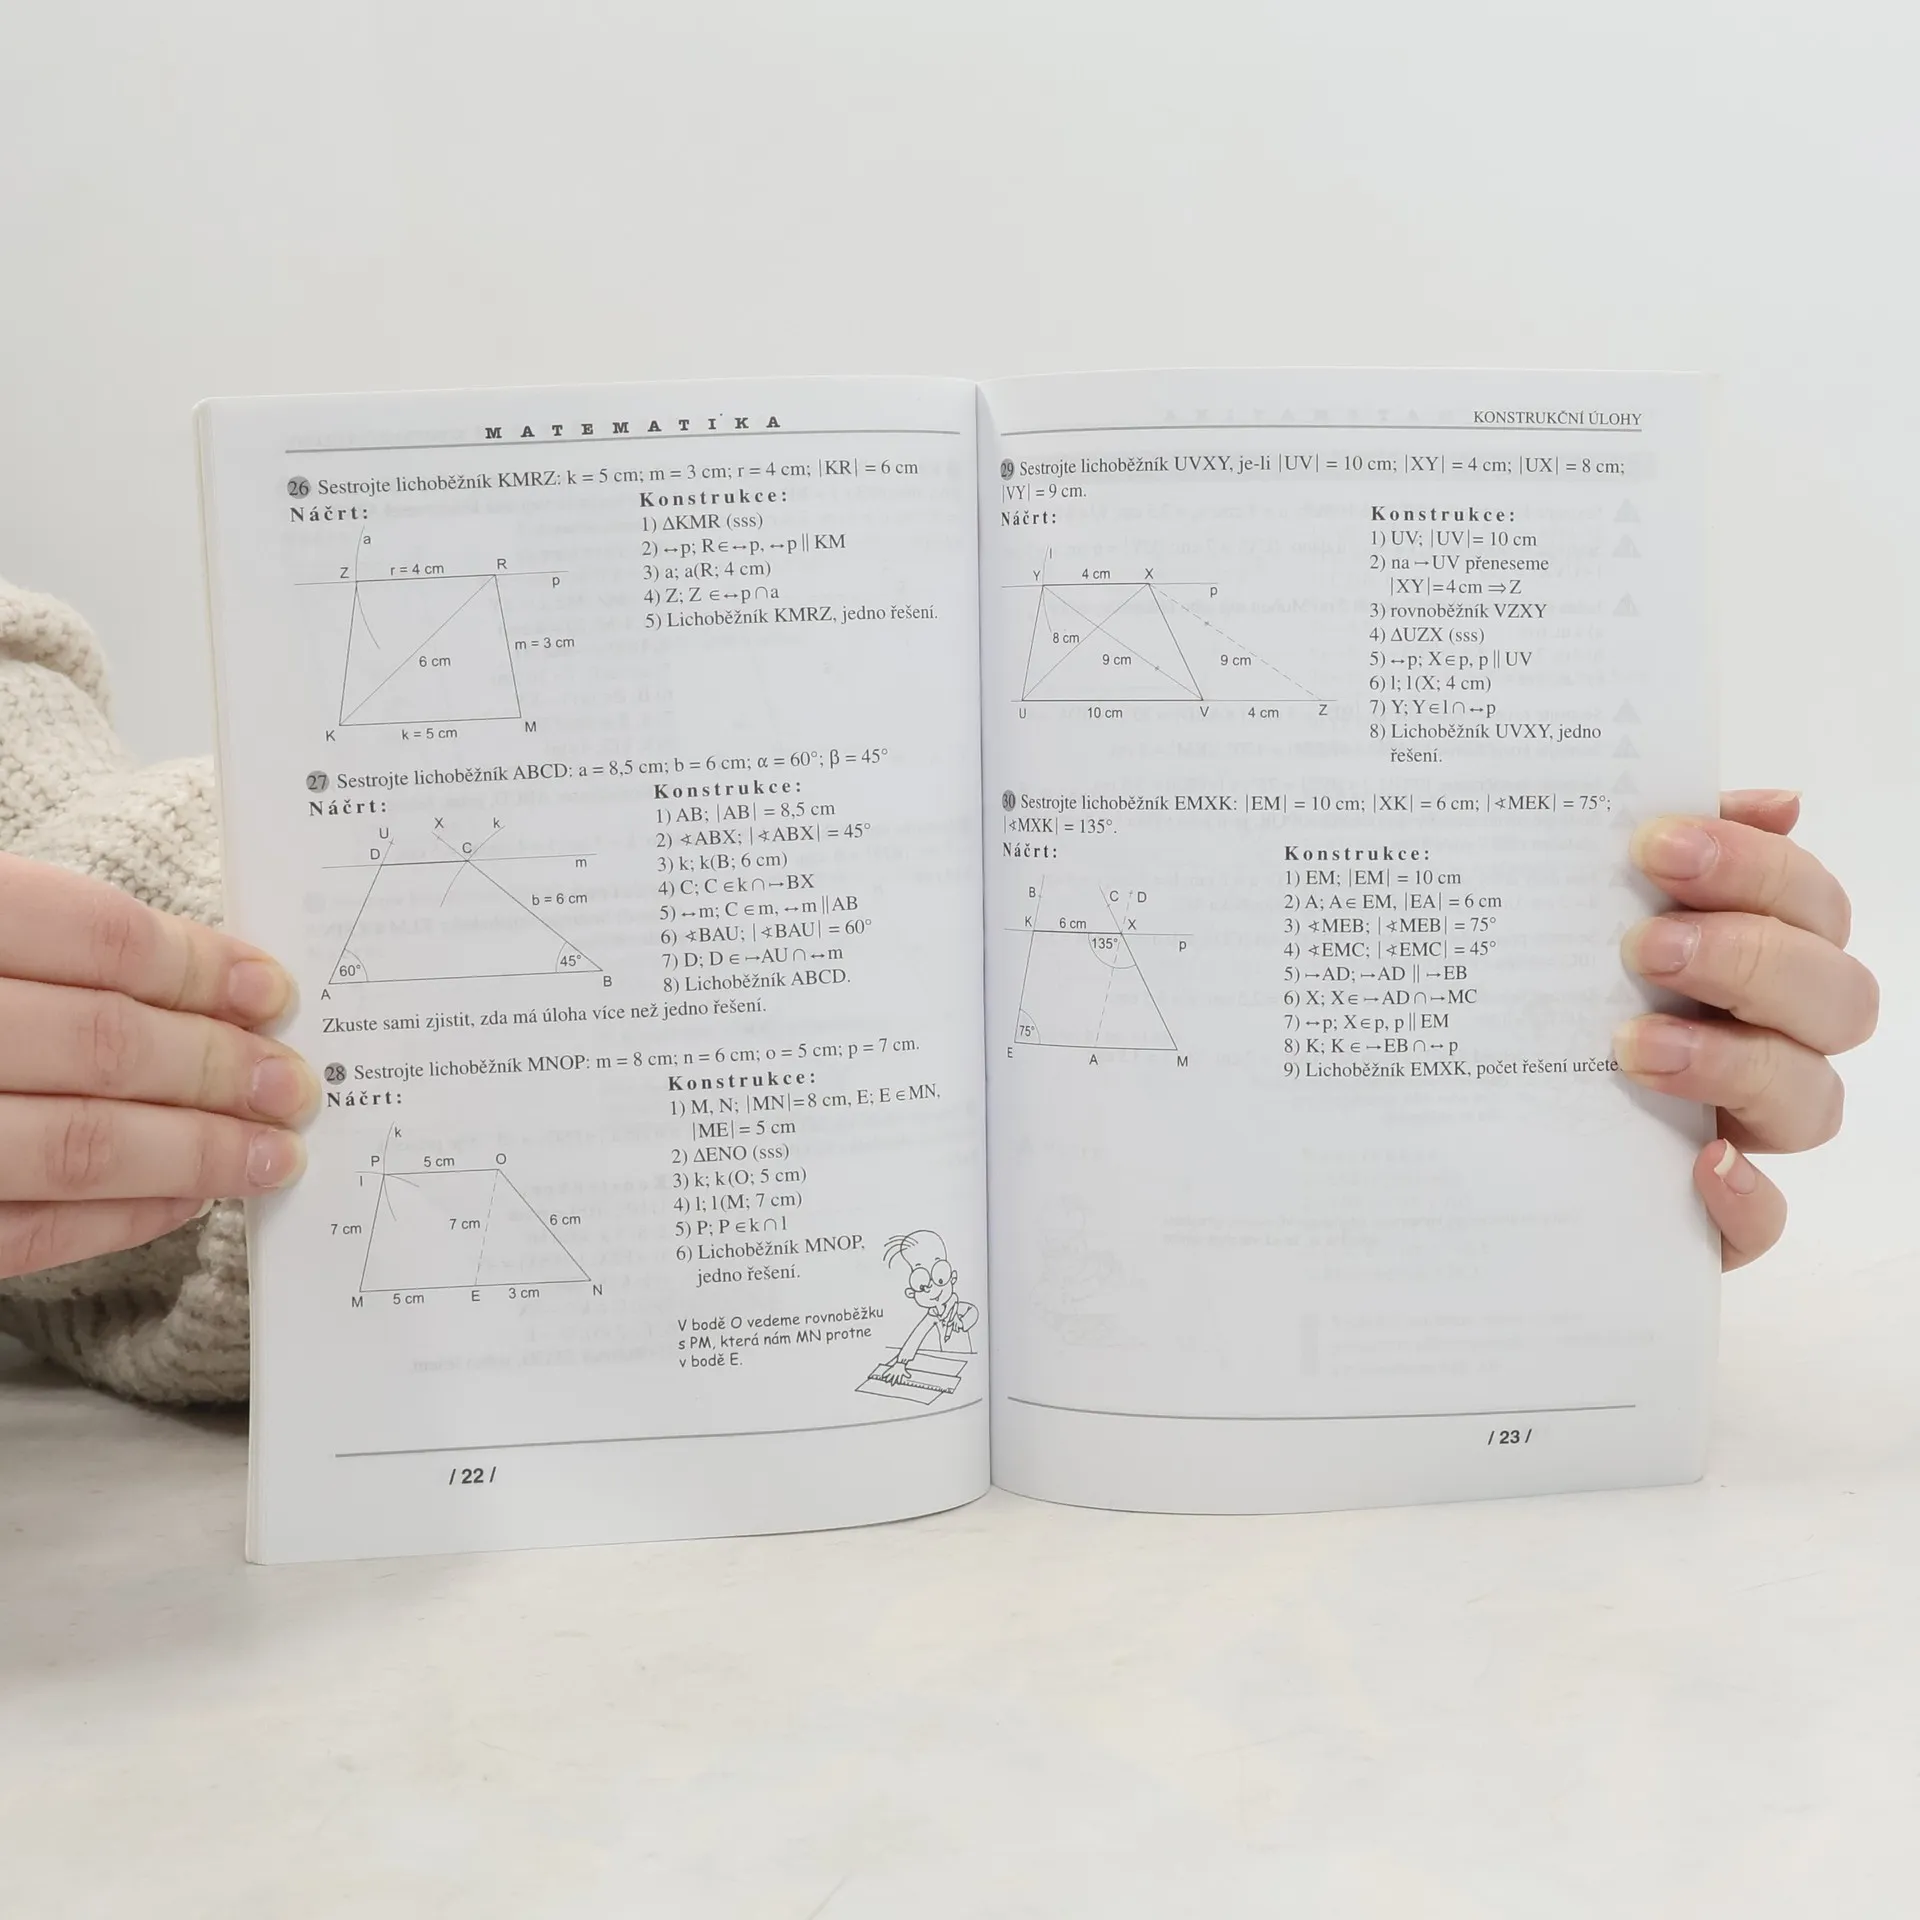 MATEMATIKA
26 Sestrojte lichoběžník KMRZ: k = 5 cm; m = 3 cm; r = 4 cm; |KR| = 6 cm
Náčrt:
Konstrukce:
1) ΔKMR (sss)
2) ↔p; R∈↔p, ↔p || KM
3) a; a(R; 4 cm)
4) Z; Z ∈↔p∩a
5) Lichoběžník KMRZ, jedno řešení.
a
Z
r = 4 cm
R
p
m = 3 cm
6 cm
K
k = 5 cm
M
27 Sestrojte lichoběžník ABCD: a = 8,5 cm; b = 6 cm; α = 60°; β = 45°
Náčrt:
Konstrukce:
1) AB; |AB| = 8,5 cm
2) ∢ABX; |∢ABX| = 45°
3) k; k(B; 6 cm)
4) C; C∈k∩→BX
5) ↔m; C∈m, ↔m || AB
6) ∢BAU; |∢BAU| = 60°
7) D; D∈→AU∩↔m
8) Lichoběžník ABCD.
U
X
k
D
C
m
b = 6 cm
60°
45°
A
B
Zkuste sami zjistit, zda má úloha více než jedno řešení.
28 Sestrojte lichoběžník MNOP: m = 8 cm; n = 6 cm; o = 5 cm; p = 7 cm.
Náčrt:
Konstrukce:
1) M, N; |MN|=8 cm, E; E∈MN,
|ME| = 5 cm
2) ΔENO (sss)
3) k; k(O; 5 cm)
4) l; l(M; 7 cm)
5) P; P∈k∩l
6) Lichoběžník MNOP,
jedno řešení.
k
P
5 cm
O
l
7 cm
7 cm
6 cm
M
5 cm
E
3 cm
N
V bodě O vedeme rovnoběžku
s PM, která nám MN protne
v bodě E.
/ 22 /
KONSTRUKČNÍ ÚLOHY
29 Sestrojte lichoběžník UVXY, je-li |UV| = 10 cm; |XY| = 4 cm; |UX| = 8 cm;
|VY| = 9 cm.
Náčrt:
Konstrukce:
1) UV; |UV|= 10 cm
2) na →UV přeneseme
|XY|=4cm ⇒Z
3) rovnoběžník VZXY
4) ΔUZX (sss)
5) ↔p; X∈p, p || UV
6) l; l(X; 4 cm)
7) Y; Y∈l∩↔p
8) Lichoběžník UVXY, jedno
řešení.
l
Y
4 cm
X
p
8 cm
9 cm
9 cm
U
10 cm
V
4 cm
Z
30 Sestrojte lichoběžník EMXK: |EM| = 10 cm; |XK| = 6 cm; |∢MEK| = 75°;
|∢MXK| = 135°.
Náčrt:
Konstrukce:
1) EM; |EM| = 10 cm
2) A; A∈ EM, |EA| = 6 cm
3) ∢MEB; |∢MEB| = 75°
4) ∢EMC; |∢EMC| = 45°
5) →AD; →AD || →EB
6) X; X∈→AD∩→MC
7) ↔p; X∈p, p || EM
8) K; K∈→EB∩↔p
9) Lichoběžník EMXK, počet řešení určete.
B
C
D
K
6 cm
X
135°
p
75°
E
A
M
/ 23 /